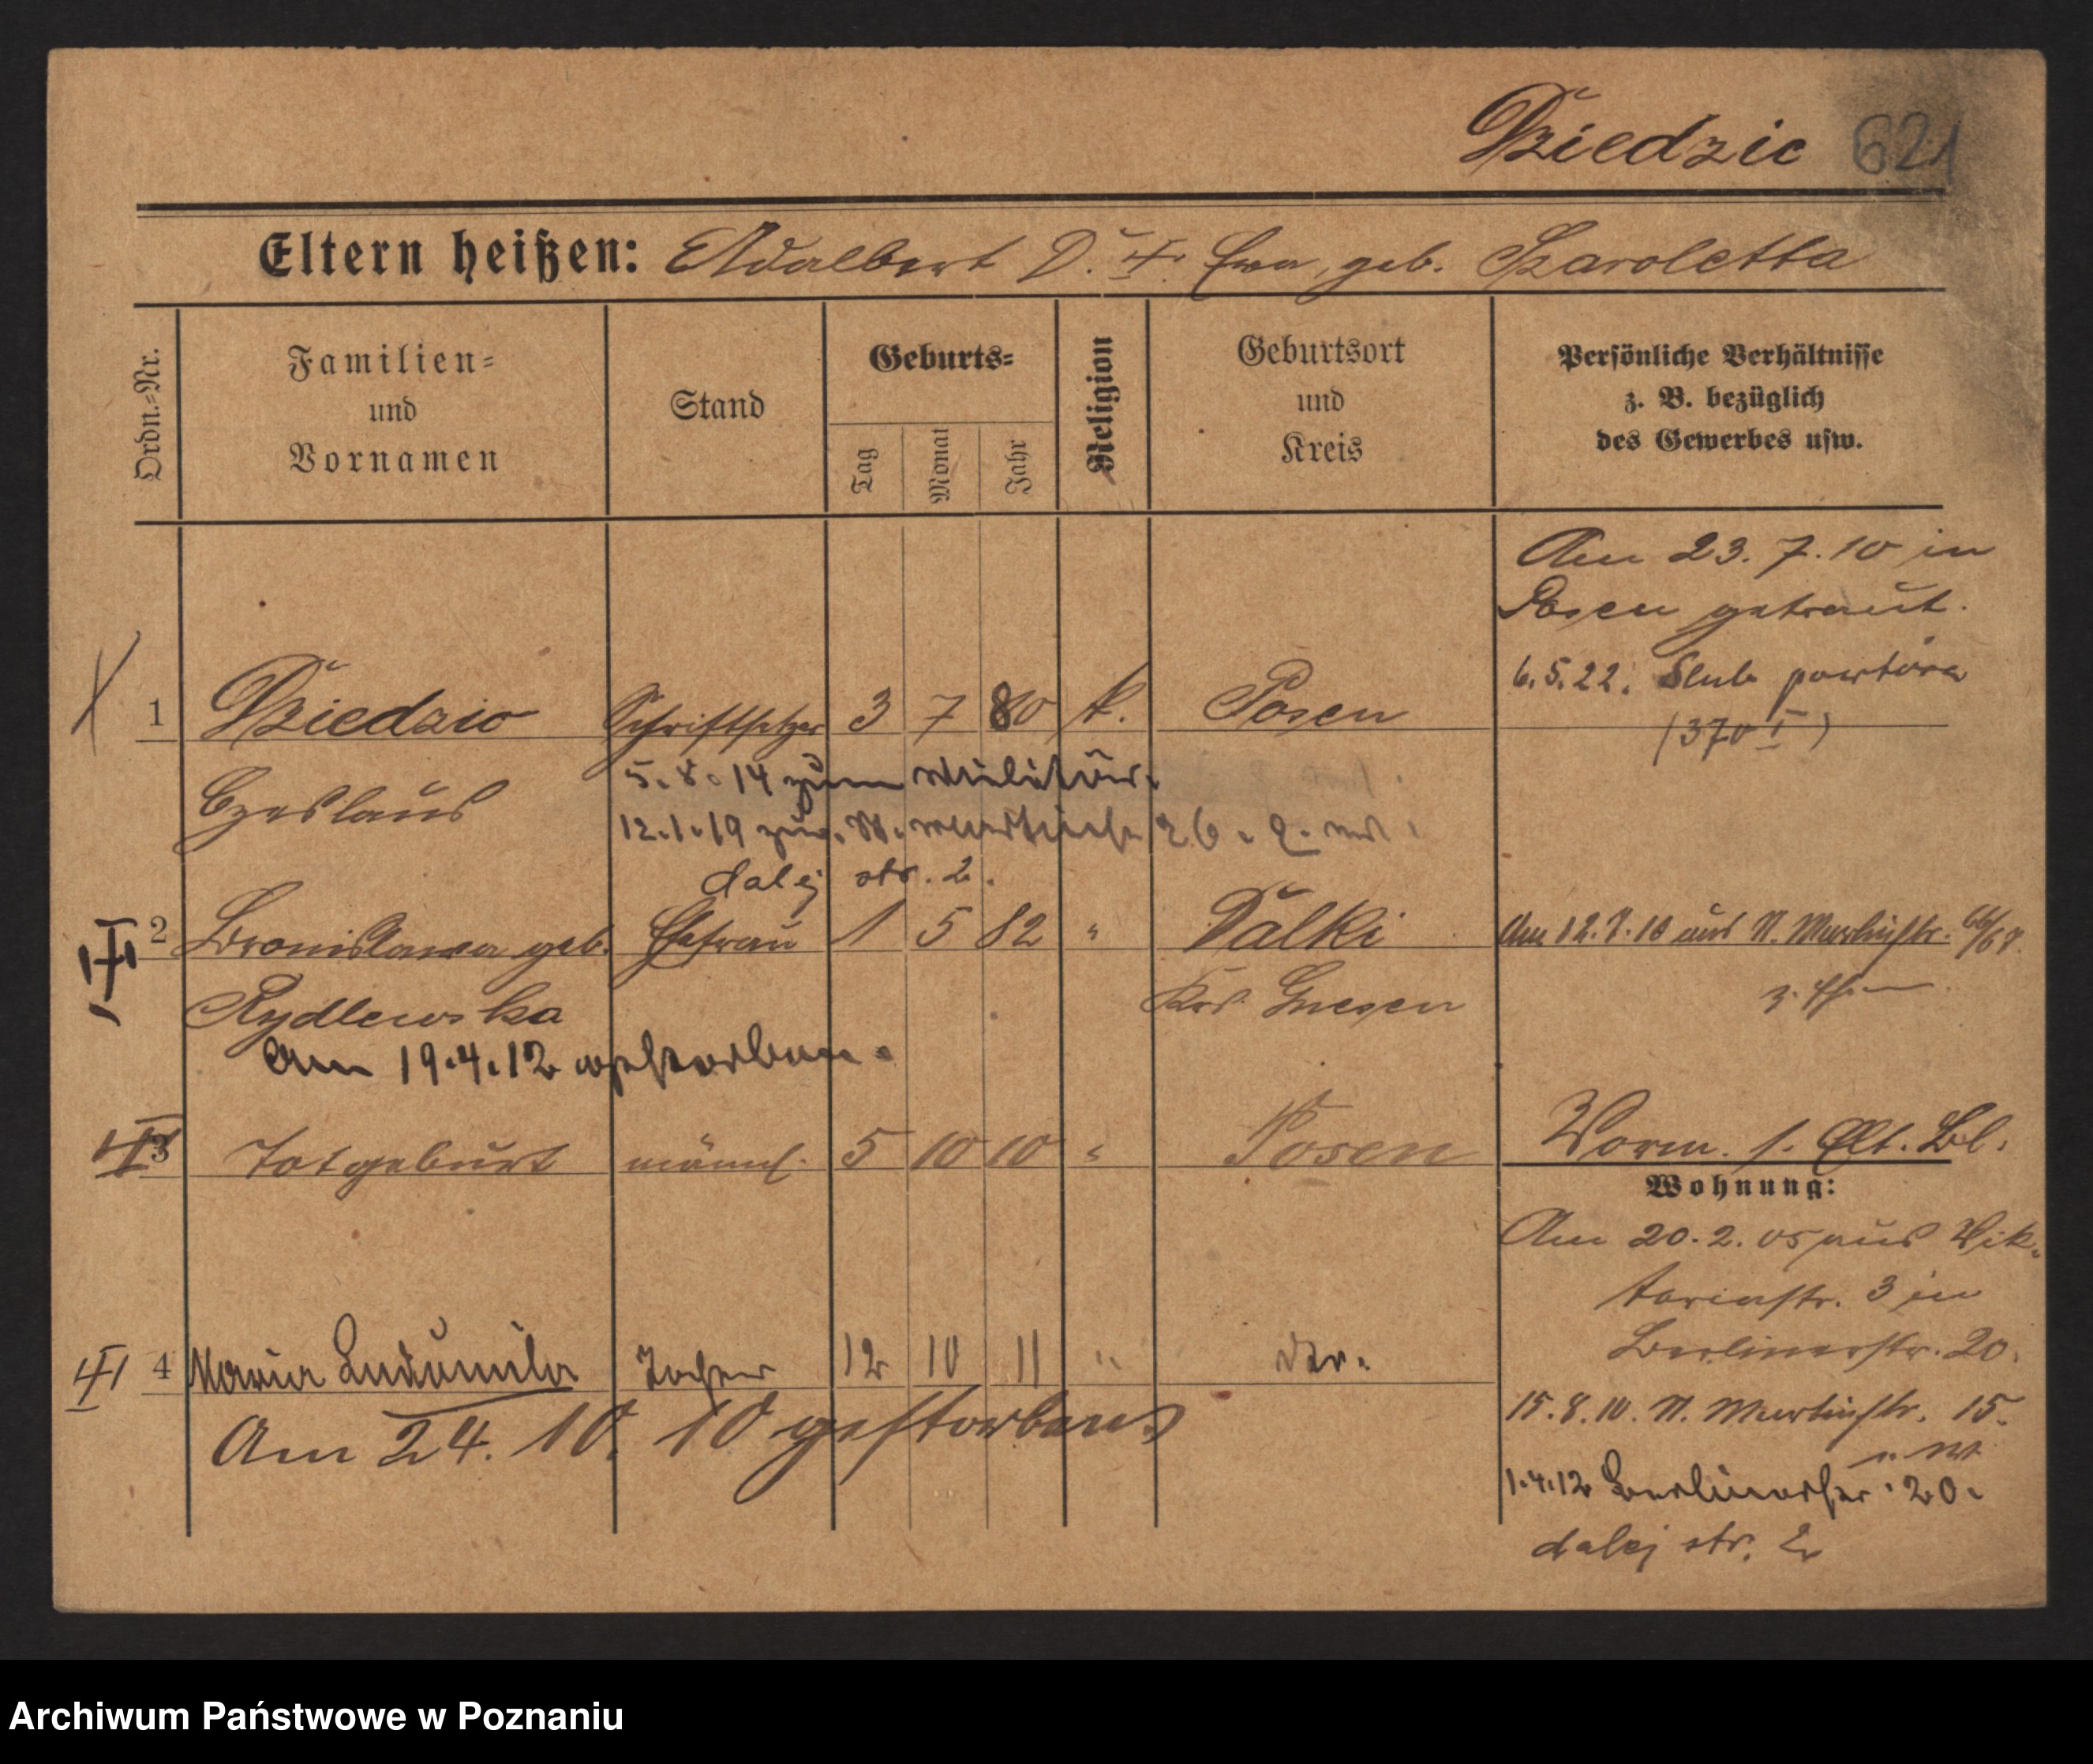 Dziedzic 621
Eltern heißen: Adalbert D. u. Eva, geb. Szaroletta
Ordn.=Nr.
Familien=
und
Vornamen
Stand
Geburts=
Tag
Monat
Jahr
Religion
Geburtsort
und
Kreis
Persönliche Verhältnisse
z. B. bezüglich
des Gewerbes usw.
Am 23. 7. 10 in
Posen getraut.
6.5.22. Ślub powtórny
(370 I)
1 Dziedzic Schriftsetzer 3 7 80 k. Posen
Czeslaus
5. 8. 14 zum Militär.
12.1.19 zur. St. Martinstr. 26.
dalej str. 2.
2 Bronislawa geb. Ehefrau 1 5 82 " Dalki Am 12.8.10 aus St. Martinstr. 66/67
Rydlewska Krs. Gnesen
Am 19.4.12 gestorben.
3 Totgeburt männl. 5 10 10 " Posen Vorm. s. Elt. Bl.
Wohnung:
Am 20. 2. 05 aus Vik-
toriastr. 3 in
Berlinerstr. 20.
4 Maria Ludumila Tochter 12 10 11 " dto.
Am 24. 10. 10 gestorben
15. 8. 10. St. Martinstr. 15.
1.4.12 Berlinerstr. 20.
dalej str. 2
Archiwum Państwowe w Poznaniu